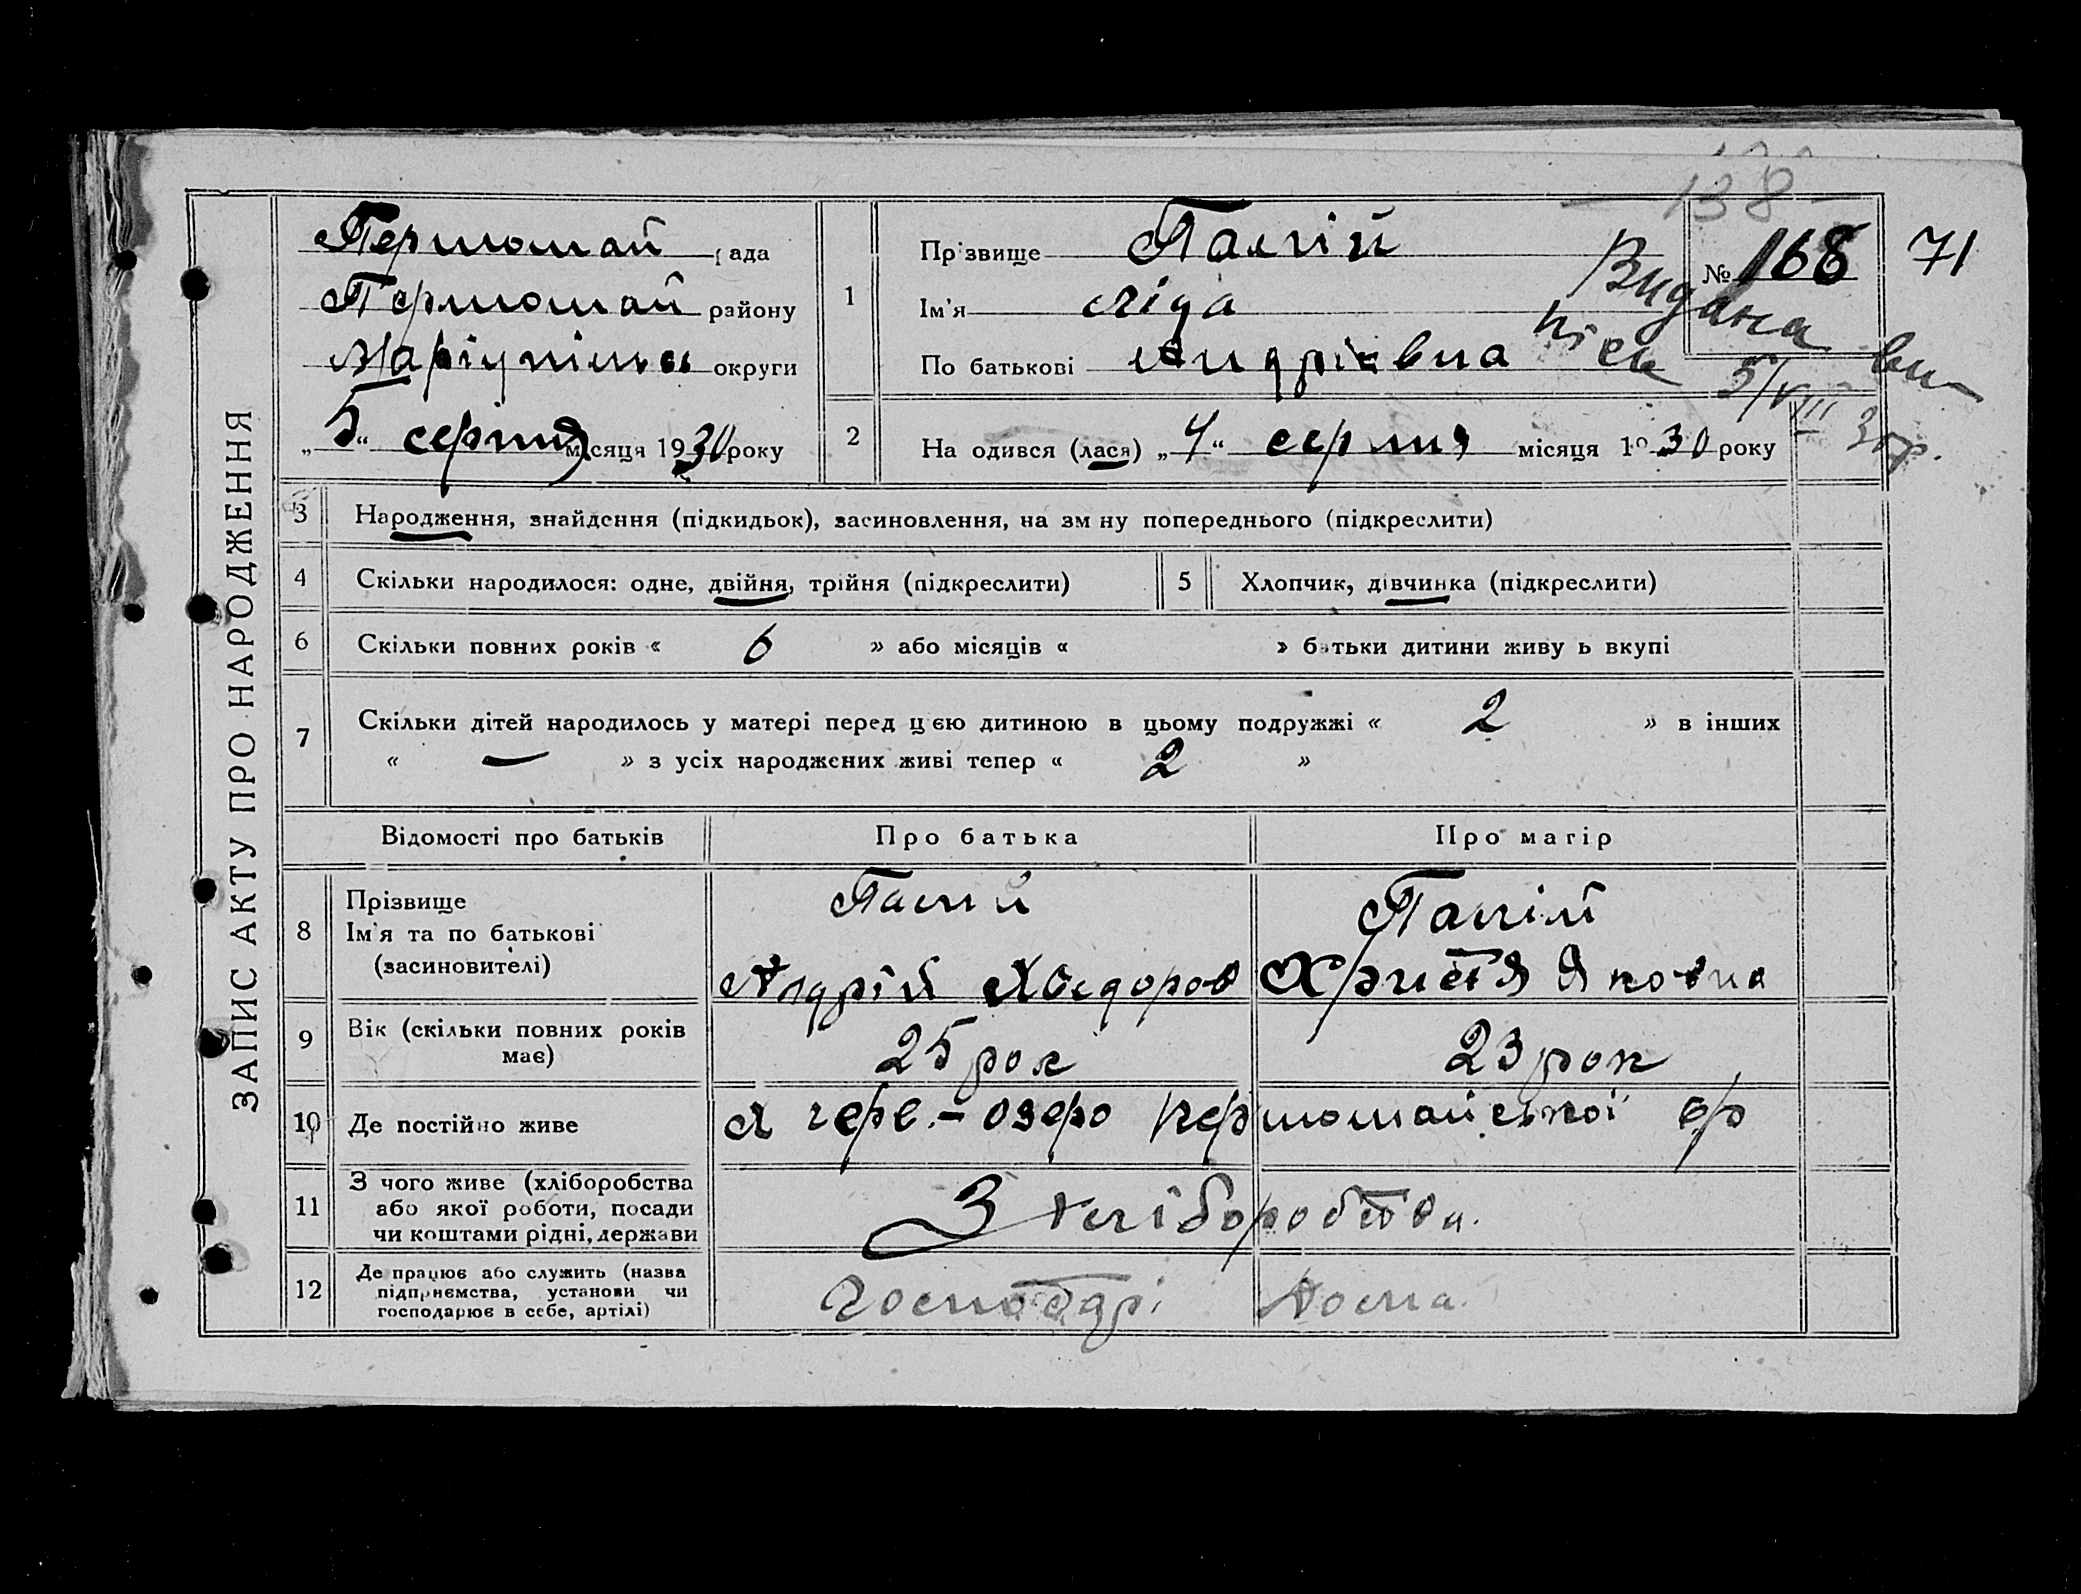 138
ЗАПИС АКТУ ПРО НАРОДЖЕННЯ
Першомай рада
Першомай району
Маріупільск округи
„5“ серпня місяця 1930 року
1
Прізвище Палій
Ім'я Ліда
По батькові Андрієвна
№ 168
71
Видана ви-
пись 5/VIII 30р.
2
Народився (лася) „4“ серпня місяця 1930 року
3 Народження, знайдення (підкидьок), засиновлення, на зміну попереднього (підкреслити)
4 Скільки народилося: одне, двійня, трійня (підкреслити)
5 Хлопчик, дівчинка (підкреслити)
6 Скільки повних років « 6 » або місяців « » батьки дитини живуть вкупі
7 Скільки дітей народилось у матері перед цією дитиною в цьому подружжі « 2 » в інших
« — » з усіх народжених живі тепер « 2 »
Відомості про батьків Про батька Про матір
8 Прізвище
Ім'я та по батькові
(засиновителі)
Палій
Андрій Хведоров
Палій
Христя Яковна
9 Вік (скільки повних років
має)
25 рок
23 рок
10 Де постійно живе
Х черв.-озеро Першомайської ср
11 З чого живе (хліборобства
або якої роботи, посади
чи коштами рідні, держави
З хліборобства.
12 Де працює або служить (назва
підприємства, установи чи
господарює в себе, артілі)